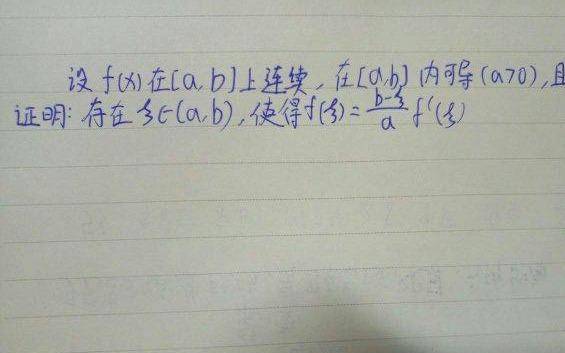 设 f(x) 在[a,b]上连续，在[a,b]内可导(a>0),且
证明: 存在 ξ∈(a,b),使得f(ξ)=\frac{b-ξ}{a} f'(ξ)